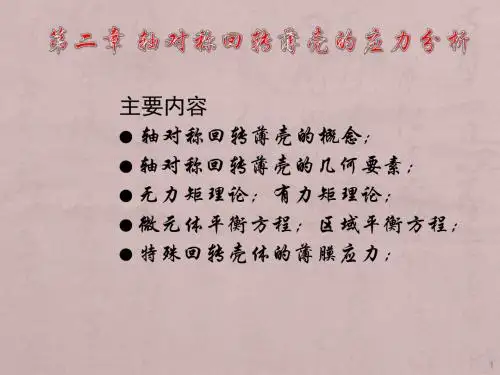 第二章 轴对称回转薄壳的应力分析
主要内容
● 轴对称回转薄壳的概念；
● 轴对称回转薄壳的几何要素；
● 无力矩理论；有力矩理论；
● 微元体平衡方程；区域平衡方程；
● 特殊回转壳体的薄膜应力；
1